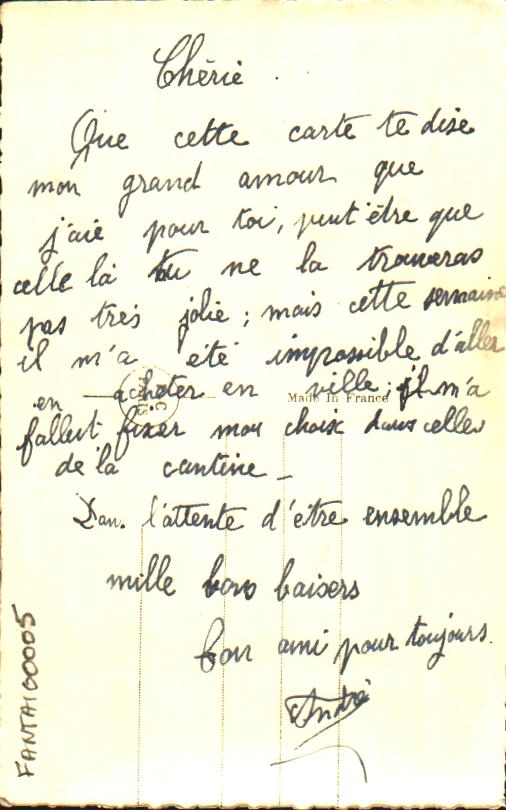 Chérie
Que cette carte te dise
mon grand amour que
j'aie pour toi, peut être que
celle là tu ne la trouveras
pas très jolie ; mais cette semaine
il m'a été impossible d'aller
en acheter en ville ; il m'a
Made In France
fallut fixer mon choix dans celles
de la cantine _
Dan. l'attente d'être ensemble
mille bons baisers
Ton ami pour toujours.
André
FANTAIG0005